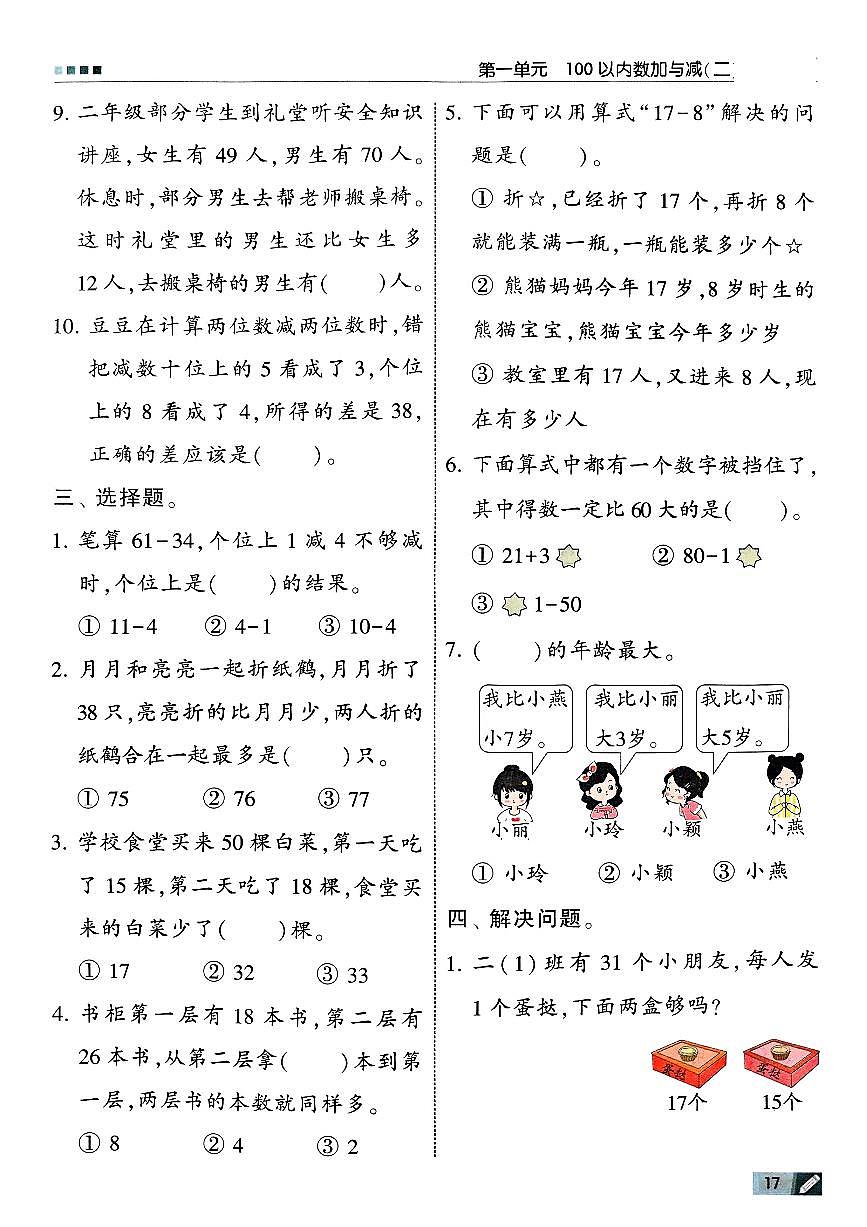 第一单元 100以内数加与减(二
9. 二年级部分学生到礼堂听安全知识
讲座,女生有 49 人,男生有 70 人。
休息时,部分男生去帮老师搬桌椅。
这时礼堂里的男生还比女生多
12人,去搬桌椅的男生有( )人。
10. 豆豆在计算两位数减两位数时,错
把减数十位上的 5 看成了 3,个位
上的 8 看成了 4,所得的差是 38,
正确的差应该是( )。
三、选择题。
1. 笔算 61-34,个位上 1 减 4 不够减
时,个位上是( )的结果。
① 11-4 ② 4-1 ③ 10-4
2. 月月和亮亮一起折纸鹤,月月折了
38 只,亮亮折的比月月少,两人折的
纸鹤合在一起最多是( )只。
① 75 ② 76 ③ 77
3. 学校食堂买来 50 棵白菜,第一天吃
了 15 棵,第二天吃了 18 棵,食堂买
来的白菜少了( )棵。
① 17 ② 32 ③ 33
4. 书柜第一层有 18 本书,第二层有
26 本书,从第二层拿( )本到第
一层,两层书的本数就同样多。
① 8 ② 4 ③ 2
5. 下面可以用算式“17-8”解决的问
题是( )。
① 折☆,已经折了 17 个,再折 8 个
就能装满一瓶,一瓶能装多少个☆
② 熊猫妈妈今年 17 岁,8 岁时生的
熊猫宝宝,熊猫宝宝今年多少岁
③ 教室里有 17 人,又进来 8 人,现
在有多少人
6. 下面算式中都有一个数字被挡住了,
其中得数一定比 60 大的是( )。
① 21+3 ② 80-1
③ 1-50
7. ( )的年龄最大。
我比小燕
小7岁。
我比小丽
大3岁。
我比小丽
大5岁。
小丽 小玲 小颖 小燕
① 小玲 ② 小颖 ③ 小燕
四、解决问题。
1. 二(1)班有 31 个小朋友,每人发
1个蛋挞,下面两盒够吗?
蛋挞 蛋挞
17个 15个
17